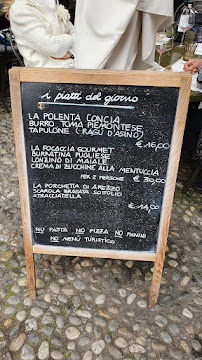 i piatti del giorno
LA POLENTA CONCIA
BURRO TOMA PIEMONTESE
TAPULONE (RAGÙ D'ASINO)
€ 16,00
LA FOCACCIA GOURMET
BURRATINA PUGLIESE
LONZINO DI MAIALE
CREMA DI ZUCCHINE ALLA MENTUCCIA
PER 2 PERSONE € 30,00
LA PORCHETTA DI AREZZO
SCAROLA BRASATA SOTTOLIO
STRACCIATELLA
€ 14,00
NO PASTA NO PIZZA NO PANINI
NO MENÙ TURISTICO